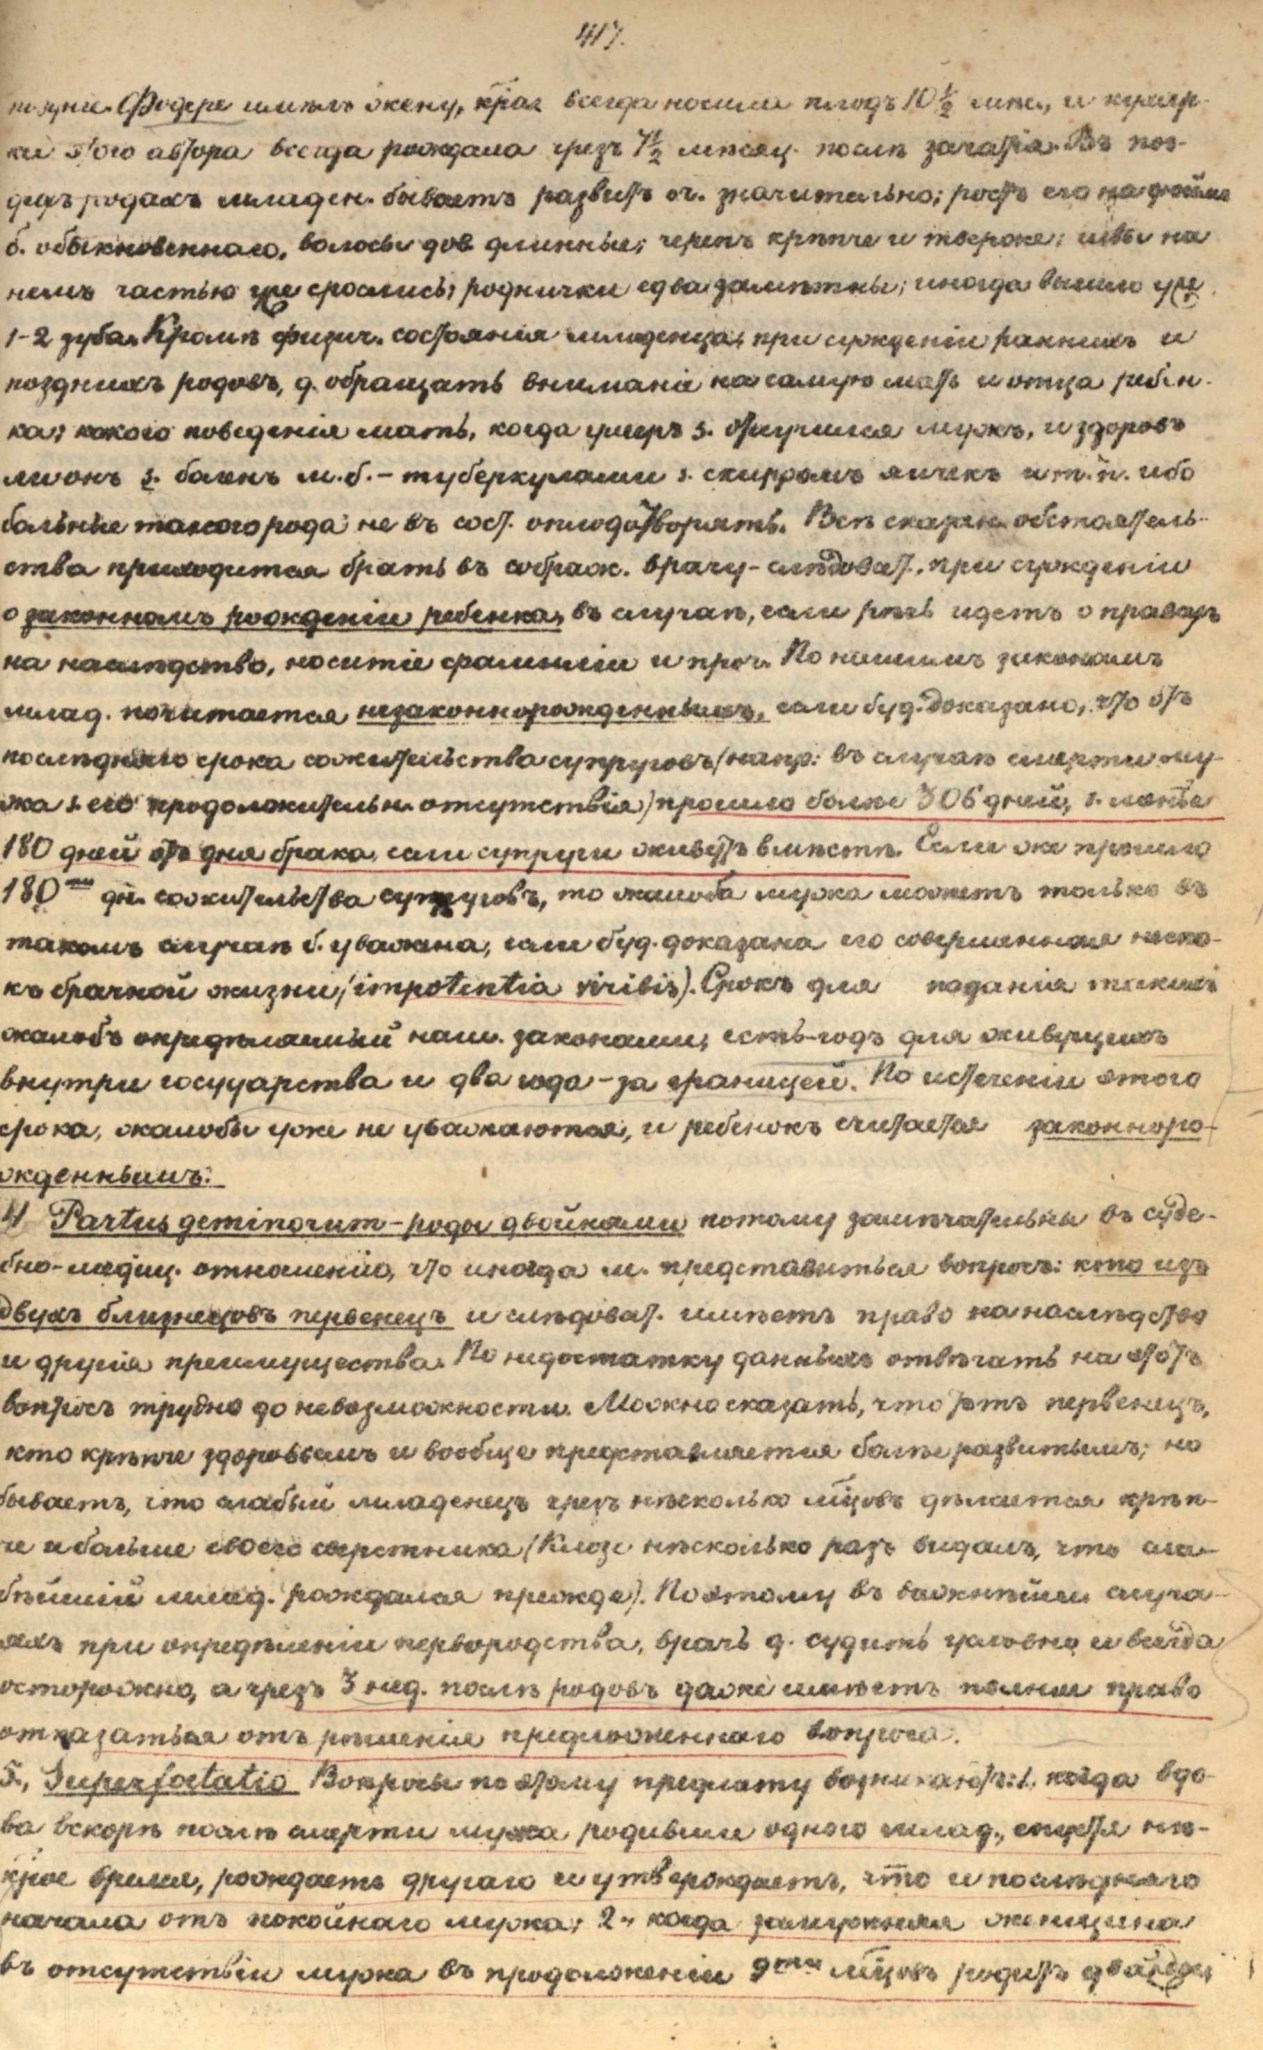 417.
Фодере имѣлъ жену, края всегда носила плодъ 10 1/2 мѣс., и кухар-
ка этого автора всегда рождала чрезъ 7 1/2 мѣсяц. послѣ зачатія. Въ поз-
дихъ родахъ младен. бываетъ развитъ оч. значительно; ростъ его на дюйма
б. обыкновеннаго, волосы дов. длинные; черепъ крѣпче и тверже; швы на
немъ частью уже срослись; роднички едва замѣтны; иногда вышло уже
1-2 зуба. Кромѣ физич. состоянія младенца, при сужденіи ранныхъ и
позднихъ родовъ, д. обращать вниманіе на самую мать и отца ребен-
ка; какого поведенія мать, когда умеръ s. отлучился мужъ, и здоровъ
ли онъ s. боленъ м. б. - туберкулами s. скирромъ яичекъ и т. п. ибо
больные такого рода не въ сост. оплодотворять. Всѣ сказан. обстоятель-
ства приходится брать въ соображ. врачу - слѣдоват. при сужденіи
о законномъ рожденіи ребенка, въ случаѣ, если рѣчь идетъ о правахъ
на наслѣдство, носитіе фамиліи и проч. По нашимъ законамъ
млад. почитается незаконнорожденнымъ, если буд. доказано, что отъ
послѣдняго срока сожительства супруговъ (напр: въ случаѣ смерти му-
жа s. его продолжительн. отсутствія) прошло болѣе 306 дней, s. менѣе
180 дней отъ дня брака, если супруги живутъ вмѣстѣ. Если же прошло
180ти дн. сожительства супруговъ, то жалоба мужа можетъ только въ
такомъ случаѣ б. уважена, если буд. доказана его совершенная неспо-
къ брачной жизни, (impotentia viribis). Срокъ для поданія такихъ
жалобъ опредѣляемый наш. законами, есть - годъ для живущихъ
внутри государства и два года - за границей. По истеченіи этого
срока, жалобы уже не уважаются, и ребенокъ считается законноро-
жденнымъ:
4 Partus geminorum - роды двойнями потому замѣчательны въ суде-
бно-медиц. отношеніи, что иногда м. представиться вопросъ: кто изъ
двухъ близнецовъ первенецъ и слѣдоват. имѣетъ право на наслѣдство
и другія преимущества. По недостатку данныхъ отвѣчать на этотъ
вопросъ трудно до невозможности. Можно сказать, что тотъ первенецъ,
кто крѣпче здоровьемъ и вообще представляется болѣе развитымъ; но
бываетъ, что слабый младенецъ чрезъ нѣсколько мѣцовъ дѣлается крѣп-
че и больше своего сверстника (Клозе нѣсколько разъ видалъ, что сла-
бѣйшій млад. рождался прежде). Поэтому въ важнѣйш. случа-
яхъ при опредѣленіи первородства, врачъ д. судить условно и всегда
осторожно, а чрезъ 3 нед. послѣ родовъ даже имѣетъ полное право
отказаться отъ рѣшенія предложеннаго вопроса.
5., Superfoetatio Вопросы по этому предмету возникаютъ: 1, когда вдо-
ва вскорѣ послѣ смерти мужа родивши одного млад., спустя нѣ-
крое время, рождаетъ другаго и утверждаетъ, что и послѣдняго
начала отъ покойнаго мужа; 2, когда замужняя женщина
въ отсутствіи мужа въ продолженіи 9ти мѣцовъ родитъ дважды;